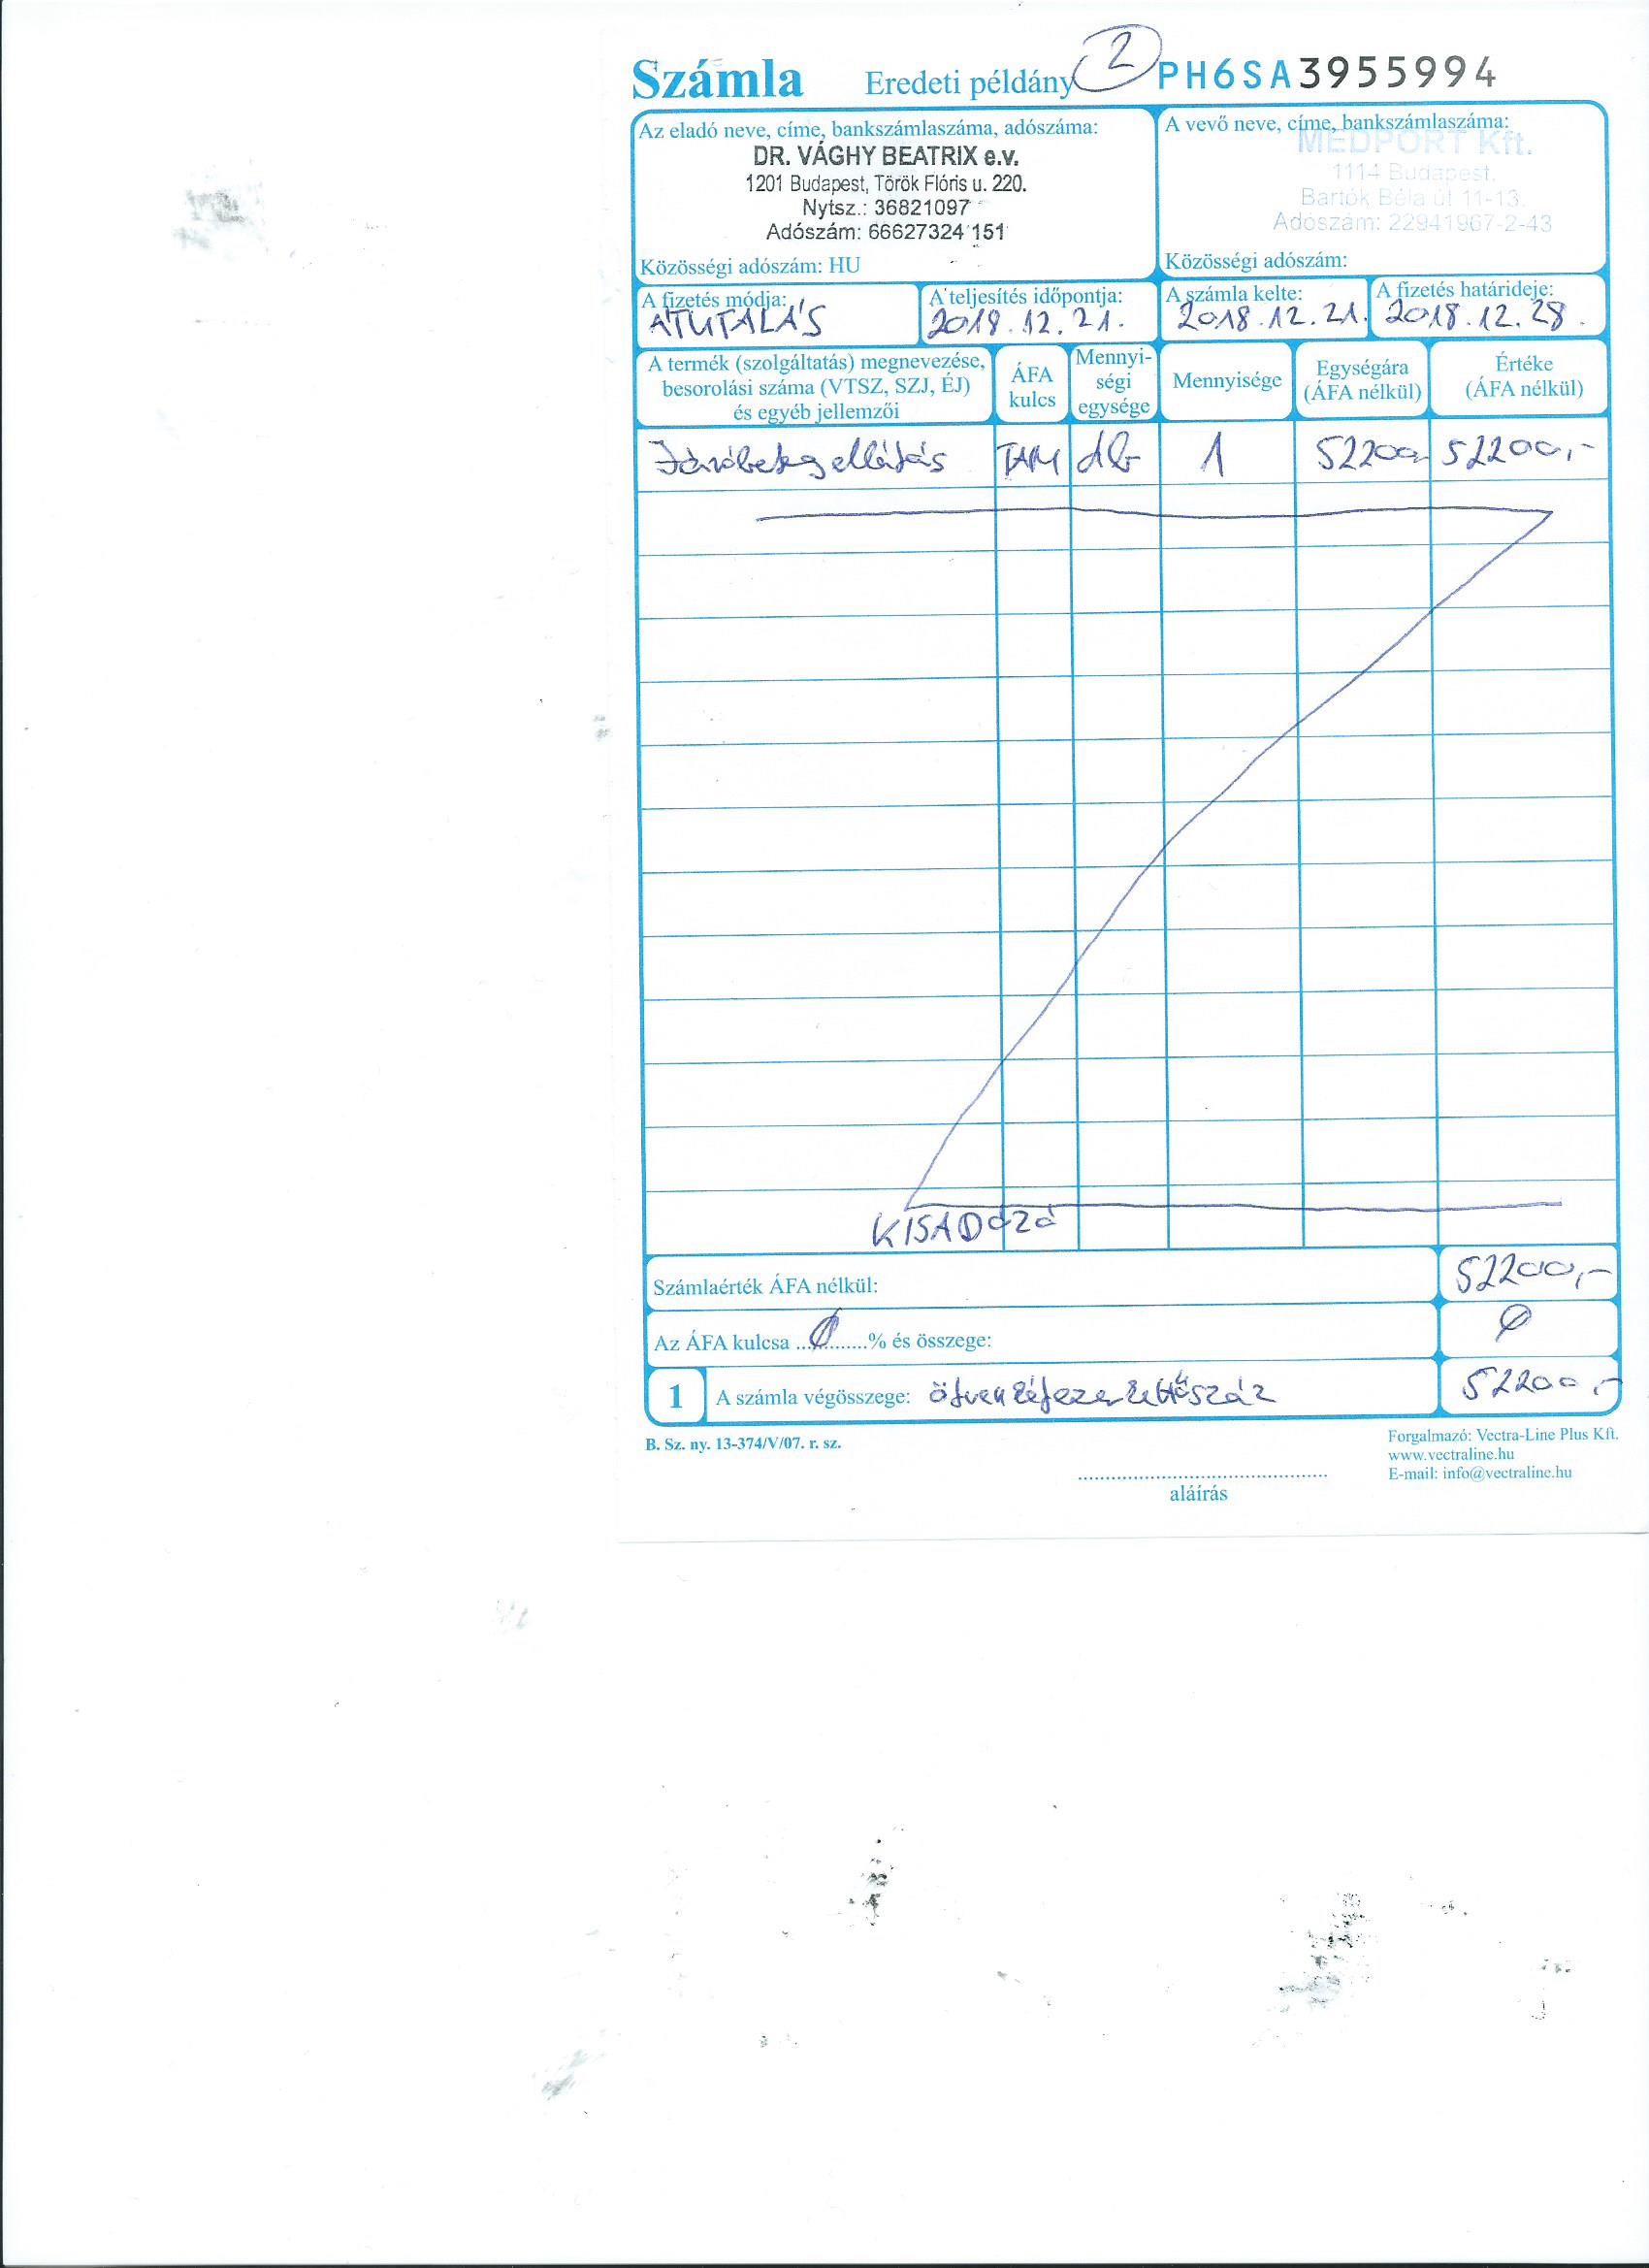 Számla Eredeti példány 2 PH6SA3955994
Az eladó neve, címe, bankszámlaszáma, adószáma:
DR. VÁGHY BEATRIX e.v.
1201 Budapest, Török Flóris u. 220.
Nytsz.: 36821097
Adószám: 66627324 151
Közösségi adószám: HU
A vevő neve, címe, bankszámlaszáma:
MEDPORT Kft.
1114 Budapest.
Bartók Béla út 11-13.
Adószám: 22941967-2-43
Közösségi adószám:
A fizetés módja:
ÁTUTALÁS
A teljesítés időpontja:
2018.12.21.
A számla kelte:
2018.12.21.
A fizetés határideje:
2018.12.28.
A termék (szolgáltatás) megnevezése,
besorolási száma (VTSZ, SZJ, ÉJ)
és egyéb jellemzői
ÁFA
kulcs
Mennyi-
ségi
egysége
Mennyisége
Egységára
(ÁFA nélkül)
Értéke
(ÁFA nélkül)
Járóbetegellátás TAM db 1 52200,- 52200,-
KISADÓZÓ
Számlaérték ÁFA nélkül: 52200,-
Az ÁFA kulcsa ...0...% és összege: 0
1 A számla végösszege: ötvenkétezerkettőszáz 52200,-
B. Sz. ny. 13-374/V/07. r. sz.
aláírás
Forgalmazó: Vectra-Line Plus Kft.
www.vectraline.hu
E-mail: info@vectraline.hu